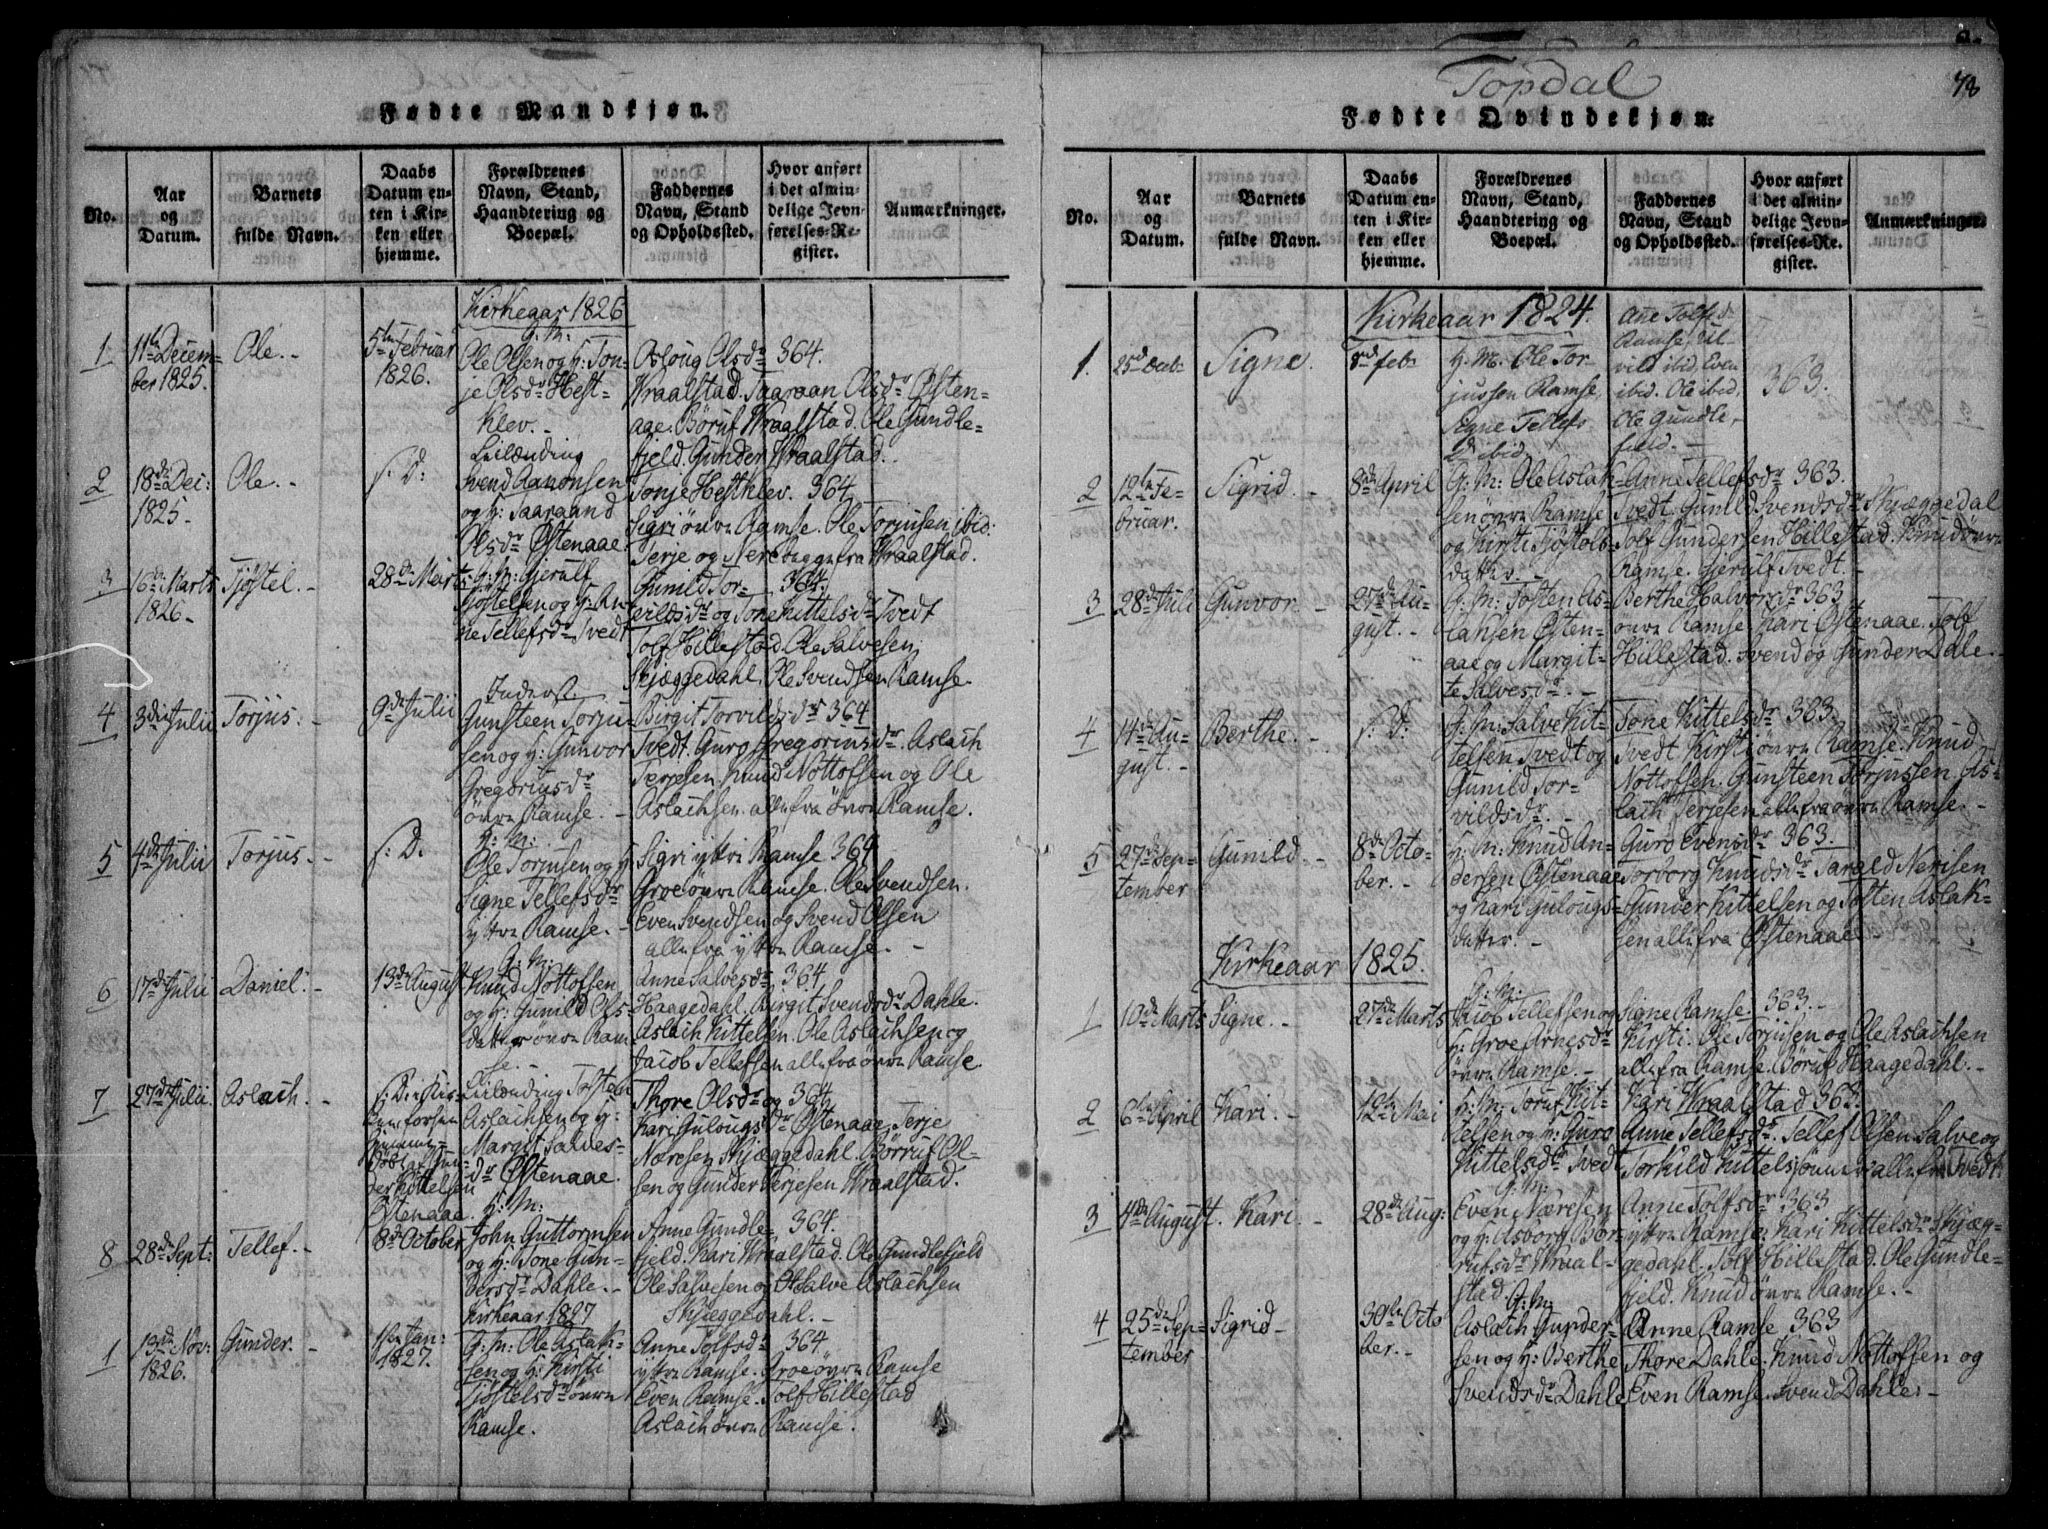 Fødte Mandkjøn.
No.
Aar og Datum.
Barnets fulde Navn.
Daabs Datum enten i Kirken eller hjemme.
Forældrenes Navn, Stand, Haandtering og Boepæl.
Faddernes Navn, Stand og Opholdssted.
Hvor anført i det almindelige Jevnførelses-Register.
Anmærkninger.
Kirkeaar 1826
1
11te Decem-
ber 1825.
Ole.
5te Februar
1826.
G: M:
Ole Olsen og H: Ton-
je Olsdr Hest-
klev.
Osloug Olsdr 364.
Wraalstad. Taaraan Olsdr Østen-
aae. Børuf Wraalstad. Ole Gundle-
fjeld. Gunder Wraalstad.
2
18de Dec:
1825.
Ole.
s. D:
Leilænding
Svend Aanonsen
og H: Taaraand
Olsdr Østenaae.
Tonje Hestklev. 364
Sigri øvre Ramse. Ole Torjusen ibid:
Terje og Nere begge fra Wraalstad.
3
16de Marts
1826.
Tjøstel.
28de Marts
G: M: Gjerulf
Tjøstelsen og H: An-
ne Tellefsdr Tvedt
Gunild Tor- 364.
vildsdr og Tone Kittelsdr Tvedt
Tolf Hillestad. Ole Salvesen
Skjæggedahl. Ole Svendsen Ramse.
4
3die Julii
Torjus.
9de Julii
Inderst
Gunsteen Torju-
sen og H: Gunvor
Gregoriusdr
øvre Ramse.
Birgit Torvildsdr 364
Tvedt. Guro Gregoriusdr. Aslach
Terjesen Knud Nottofsen og Ole
Aslachsen alle fra øvre Ramse.
5
4de Julii
Torjus.
s. D.
H: M:
Ole Torjusen og H:
Signe Tellefsdr
yttre Ramse.
Sigri yttre Ramse 364
Groe øvre Ramse. Ole Svendsen.
Even Svendsen og Svend Olsen
alle fra yttre Ramse.
6
17de Julii
Daniel.
13de August
G: M:
Knud Nottofsen
og H: Gunild Ols-
datter øvre Ram-
se.
Anne Salvesdr 364
Haagedahl. Birgit Svendsdr Dahle.
Aslach Kittelsen. Ole Aslachsen og
Jacob Tellefsen alle fra øvre Ramse.
7
27de Julii.
Aslach.
s. D. i Kir-
ken forsen
hjemme-
døbt af Gun-
der Kittelsen
Østenaae.
Leilænding Tosten
Aslachsen og H:
Margit Salves-
dr Østenaae.
Thore Olsdr og 364
Kari Gulougsdr Østenaae. Terje
Næresen Skjæggedahl. Børruf Ol-
sen og Gunder Terjesen Wraalstad.
8
28de Sept:
Tellef.
8de October
H: M:
John Guttormsen
og H: Tone Gun-
dersdr Dahle.
Anne Gundle- 364.
fjeld. Kari Wraalstad. Ole Gundlefjeld
Ole Salvesen og Salve Aslachsen
Skjæggedahl.
Kirkeaar 1827
1
13de Nov:
1826.
Gunder.
1te Jan:
1827.
G: M: Ole Aslak-
sen og H: Kirsti
Tjøstelsdr øvre
Ramse.
Anne Tolfsdr 364
yttre Ramse. Groe øvre Ramse
Even Ramse. Tolf Hillestad
Aslach øvre Ramse.
Topdal
78
Fødte Qvindekjøn.
No.
Aar og Datum.
Barnets fulde Navn.
Daabs Datum enten i Kirken eller hjemme.
Forældrenes Navn, Stand, Haandtering og Boepæl.
Faddernes Navn, Stand og Opholdssted.
Hvor anført i det almindelige Jevnførelses-Re.gister.
Anmærkninger.
Kirkeaar 1824.
1.
25de
Signe.
8de feb
H. M. Ole Tor-
jusson Ramse,
Signe Tellefs
D ibid
Ane Tolfsd.
Ramse,
vild ibid, Even
ibid. Ole ibid,
Ole Gundle-
field.
363.
2
12te Fe-
bruar.
Sigrid.
8de April
G: M: Ole Aslak-
sen øvre Ramse
og Kirsti Tjøstols-
datter.
Anne Tellefsdr 363.
Tvedt. Gunild Svendsdr Skjæggedal
Tolf Gundersen Hillestad. Knud øvre
Ramse. Gjerulf Tvedt.
3
28de Juli
Gunvor.
27de Au-
gust.
G: M: Tosten As-
laksen Østen-
aae og Margit-
te Salvesdr.
Berthe Halvorsdr 363
øvre Ramse. Kari Østenaae. Tolf
Hillestad. Svend og Gunder Dahle.
4
14de Au-
gust.
Berthe.
s: D:
G: M: Salve Kit-
telsen Tvedt og
Gunild Tor-
vildsdr.
Tone Kittelsdr 363.
Tvedt Kirsti øvre Ramse. Knud
Nottofsen. Gunsteen Torjussen. As-
lach Terjesen alle fra øvre Ramse.
5
27de Sep-
tember
Gunild.
8de Octo-
ber.
H: M: Knud An-
dersen Østenaae
og Kari Gulougs-
datter.
Guro Evensdr 363.
Torborg Knudsdr Tarald Nerisen
Gunder Kittelsen og Tosten Aslak-
sen alle fra Østenaae
Kirkeaar 1825.
1
10de Marts
Signe.
27de Marts
G: M:
Jacob Tellefsen og
H: Groe Arnesdr
øvre Ramse.
Signe Ramse. 363.
Kirsti. Ole Torjusen og Ole Aslachsen
alle fra Ramse. Børuf Haagedahl.
2
6te April
Kari.
12te Mai
H: M: Toruf Kit-
telsen og H: Guro
Kittelsdr Tvedt
Kari Wraalstad 363.
Anne Tellefsdr. Tellef Olsen Salve og
Torkild Kittelsønner alle fra Tvedt.
3
4de August.
Kari.
28de Aug:
G: M:
Even Næresen
og H: Asborg Bør-
rufsdr Wraal-
stad.
Anne Tolfsdr 363
yttre Ramse. Kari Kittelsdr Skjæg-
gedahl. Tolf Hillestad. Ole Gundle-
fjeld. Knud øvre Ramse.
4
25de Sep-
tember
Sigrid
30te Octo
ber.
G: M:
Aslach Gunder-
sen og H: Berthe
Svendsdr Dahle
Anne Ramse 363
Thore Dahle. Knud Nottofsen og
Even Ramse. Svend Dahle.